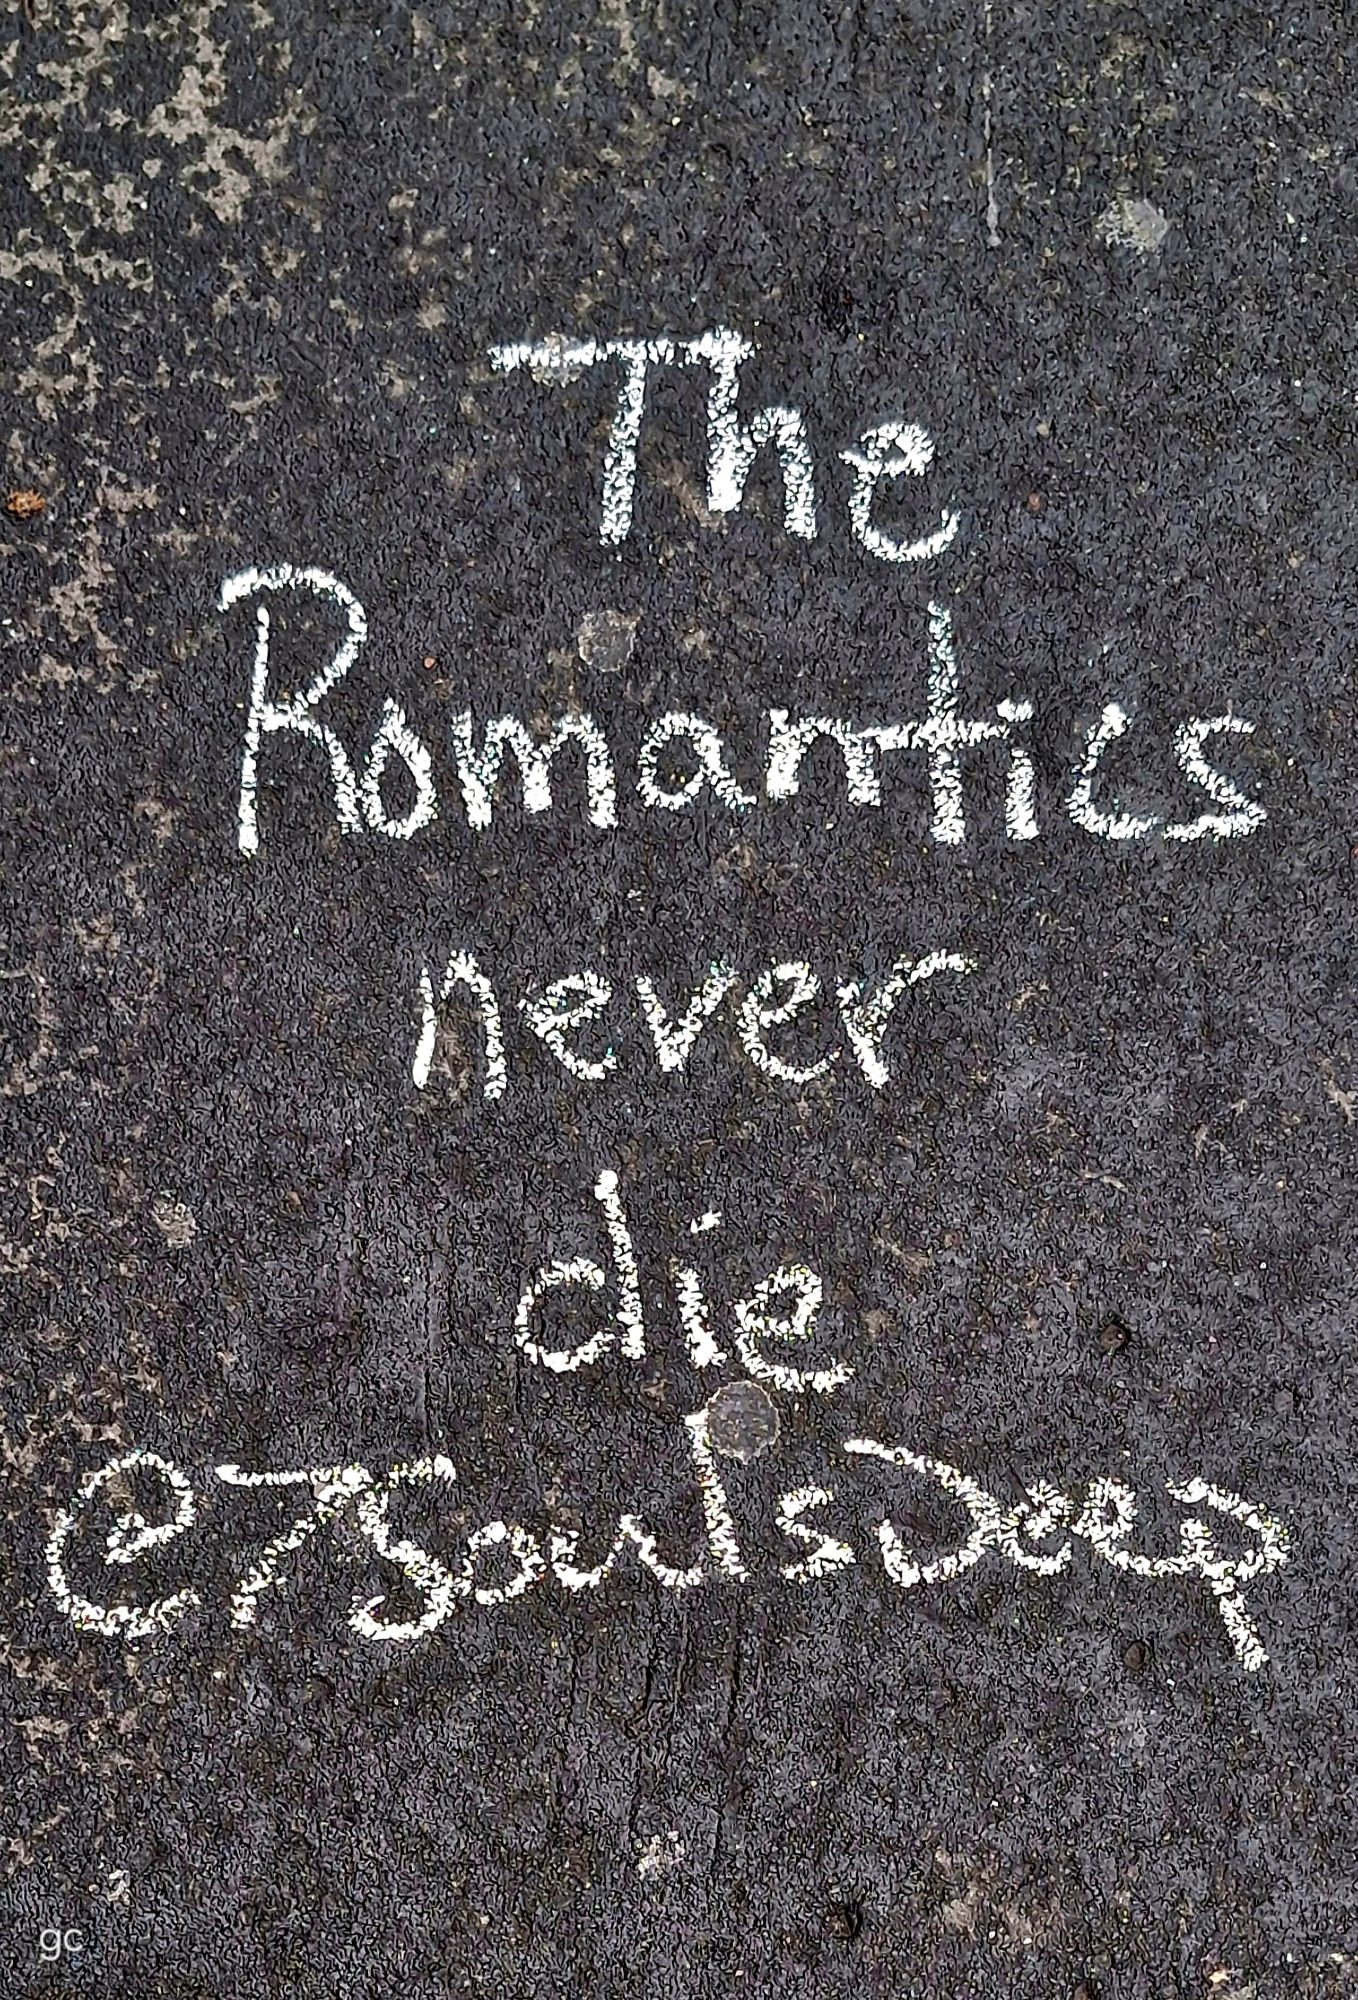 The
Romantics
never
die
@7SoulsDeep
gc